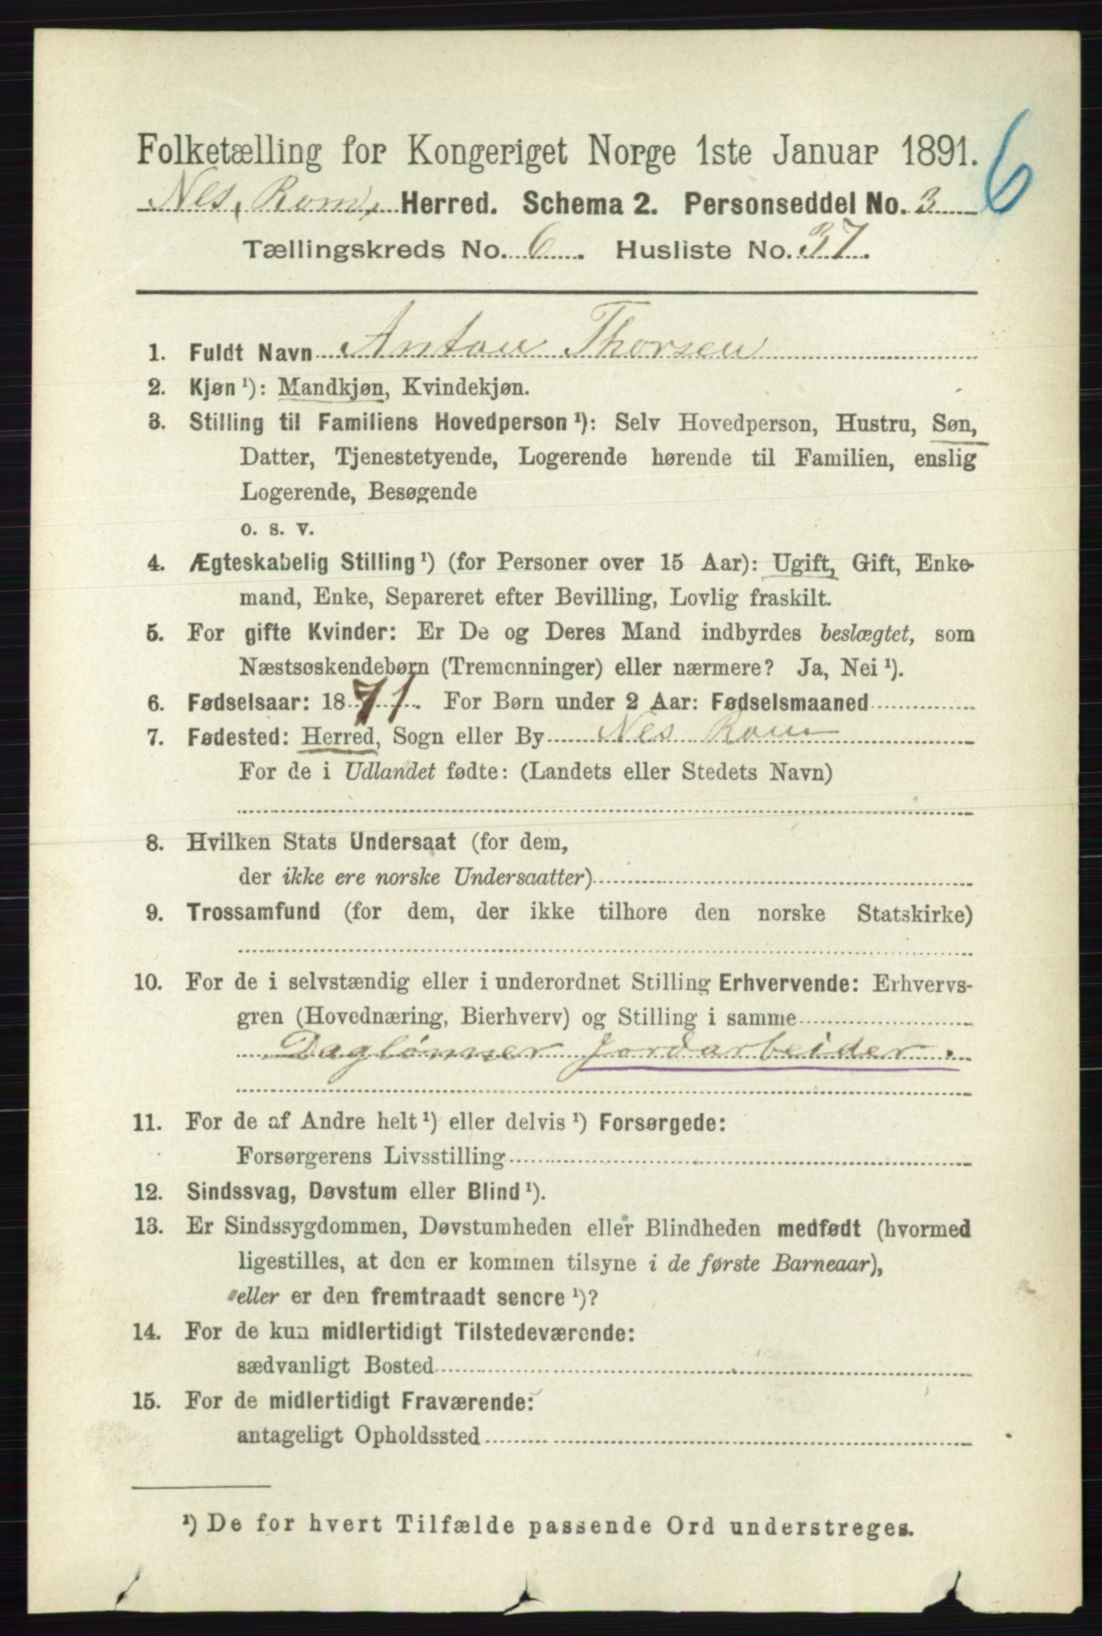 6
Folketælling for Kongeriget Norge 1ste Januar 1891.
Nes, Rom, Herred. Schema 2. Personseddel No. 3
Tællingskreds No. 6. Husliste No. 37.
1. Fuldt Navn Anton Thorsen
2. Kjøn ¹): Mandkjøn, Kvindekjøn.
3. Stilling til Familiens Hovedperson ¹): Selv Hovedperson, Hustru, Søn,
Datter, Tjenestetyende, Logerende hørende til Familien, enslig
Logerende, Besøgende
o. s. v.
4. Ægteskabelig Stilling ¹) (for Personer over 15 Aar): Ugift, Gift, Enke-
mand, Enke, Separeret efter Bevilling, Lovlig fraskilt.
5. For gifte Kvinder: Er De og Deres Mand indbyrdes beslægtet, som
Næstsøskendebørn (Tremenninger) eller nærmere? Ja, Nei ¹).
6. Fødselsaar: 1871. For Børn under 2 Aar: Fødselsmaaned
7. Fødested: Herred, Sogn eller By Nes Rom
For de i Udlandet fødte: (Landets eller Stedets Navn)
8. Hvilken Stats Undersaat (for dem,
der ikke ere norske Undersaatter)
9. Trossamfund (for dem, der ikke tilhore den norske Statskirke)
10. For de i selvstændig eller i underordnet Stilling Erhvervende: Erhvervs-
gren (Hovednæring, Bierhverv) og Stilling i samme
Daglönner Jordarbeider.
11. For de af Andre helt ¹) eller delvis ¹) Forsørgede:
Forsørgerens Livsstilling
12. Sindssvag, Døvstum eller Blind ¹).
13. Er Sindssygdommen, Døvstumheden eller Blindheden medfødt (hvormed
ligestilles, at den er kommen tilsyne i de første Barneaar),
eller er den fremtraadt senere ¹)?
14. For de kun midlertidigt Tilstedeværende:
sædvanligt Bosted
15. For de midlertidigt Fraværende:
antageligt Opholdssted
¹) De for hvert Tilfælde passende Ord understreges.